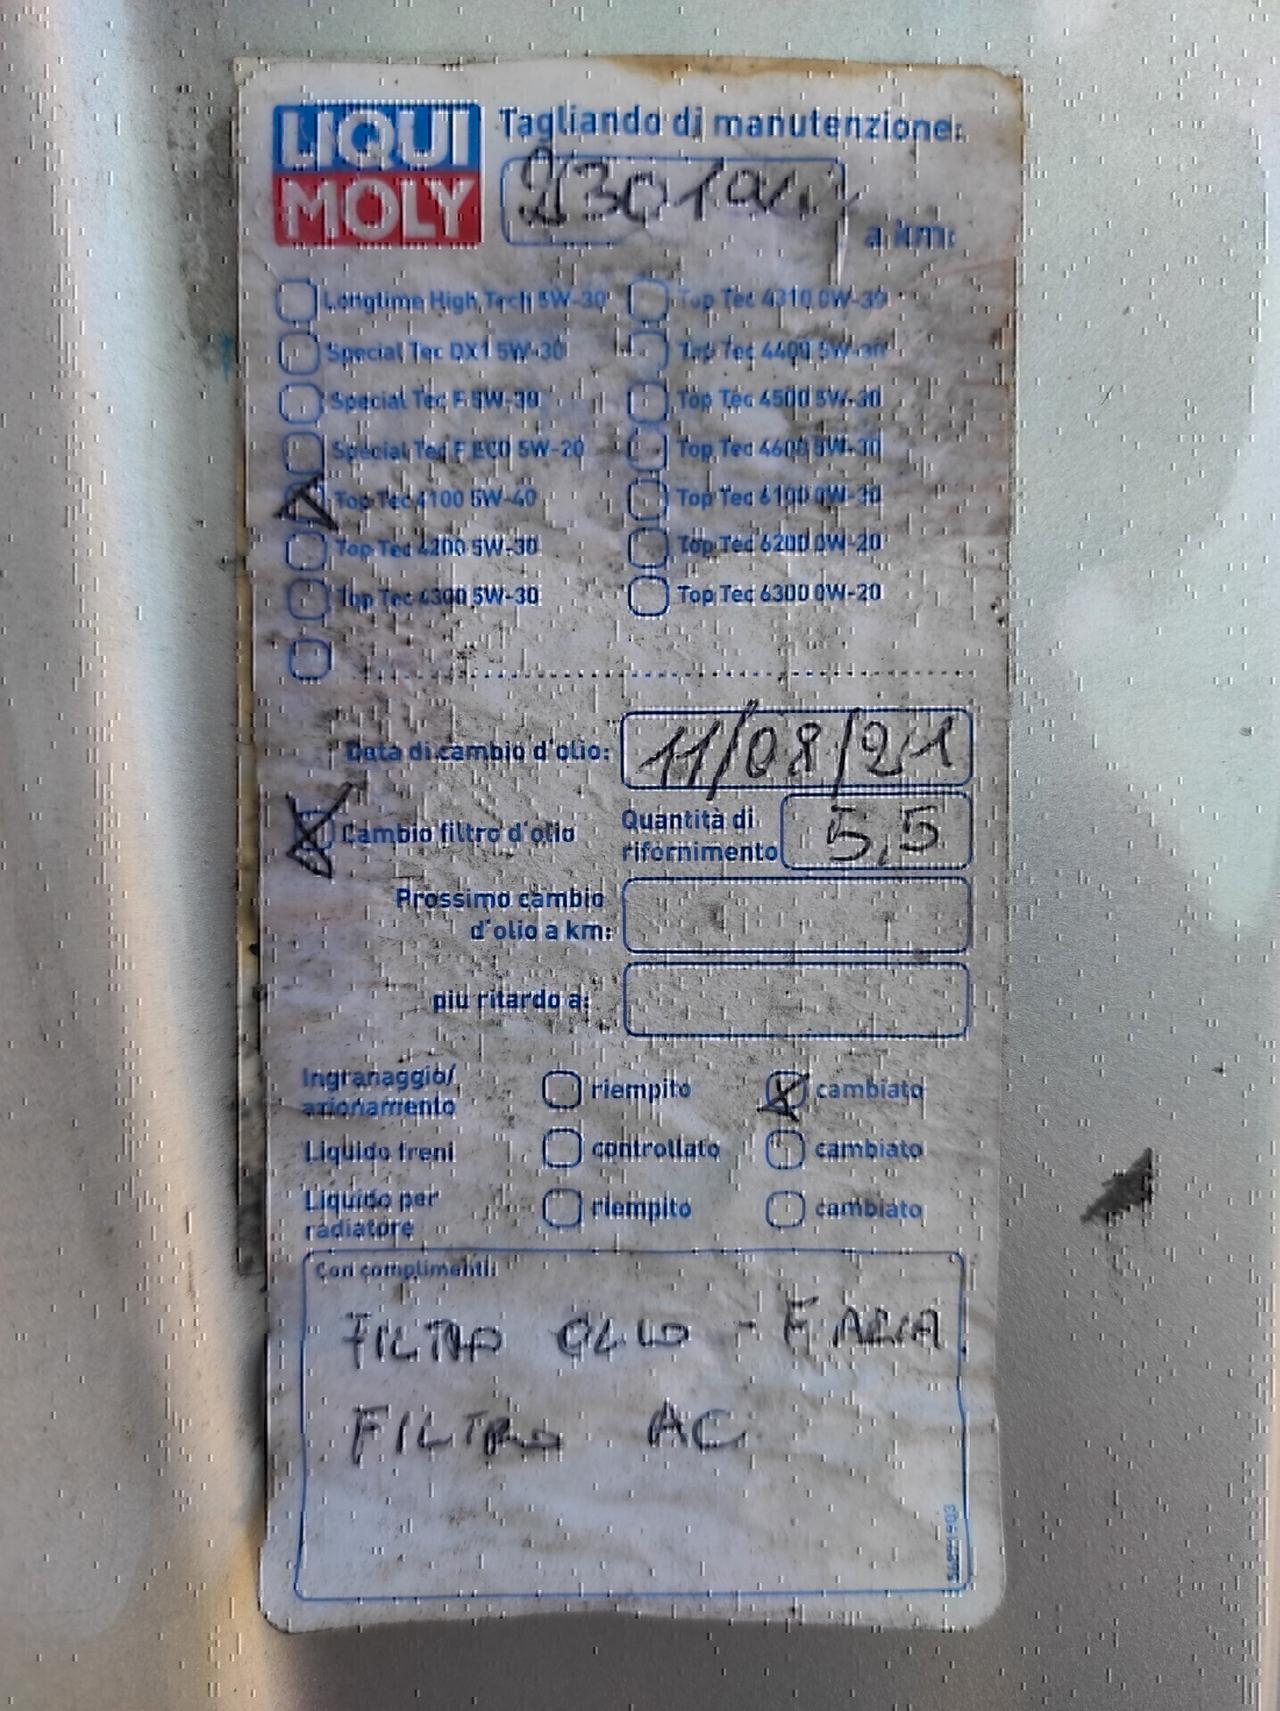 LIQUI MOLY
Tagliando di manutenzione:
a km:
Longtime High Tech 5W-30
Top Tec 4310 0W-30
Special Tec DX1 5W-30
Top Tec 4400 5W-30
Special Tec F 5W-30
Top Tec 4500 5W-30
Special Tec F ECO 5W-20
Top Tec 4600 5W-30
Top Tec 4100 5W-40
Top Tec 6100 0W-30
Top Tec 4200 5W-30
Top Tec 6200 0W-20
Top Tec 4300 5W-30
Top Tec 6300 0W-20
Data di cambio d'olio: 11/08/21
Cambio filtro d'olio
Quantità di
rifornimento 5,5
Prossimo cambio
d'olio a km:
piu ritardo a:
Ingranaggio/
azionamento
riempito
cambiato
Liquido freni
controllato
cambiato
Liquido per
radiatore
riempito
cambiato
Con complimenti:
FILTRO OLIO - F ARIA
FILTRO AC